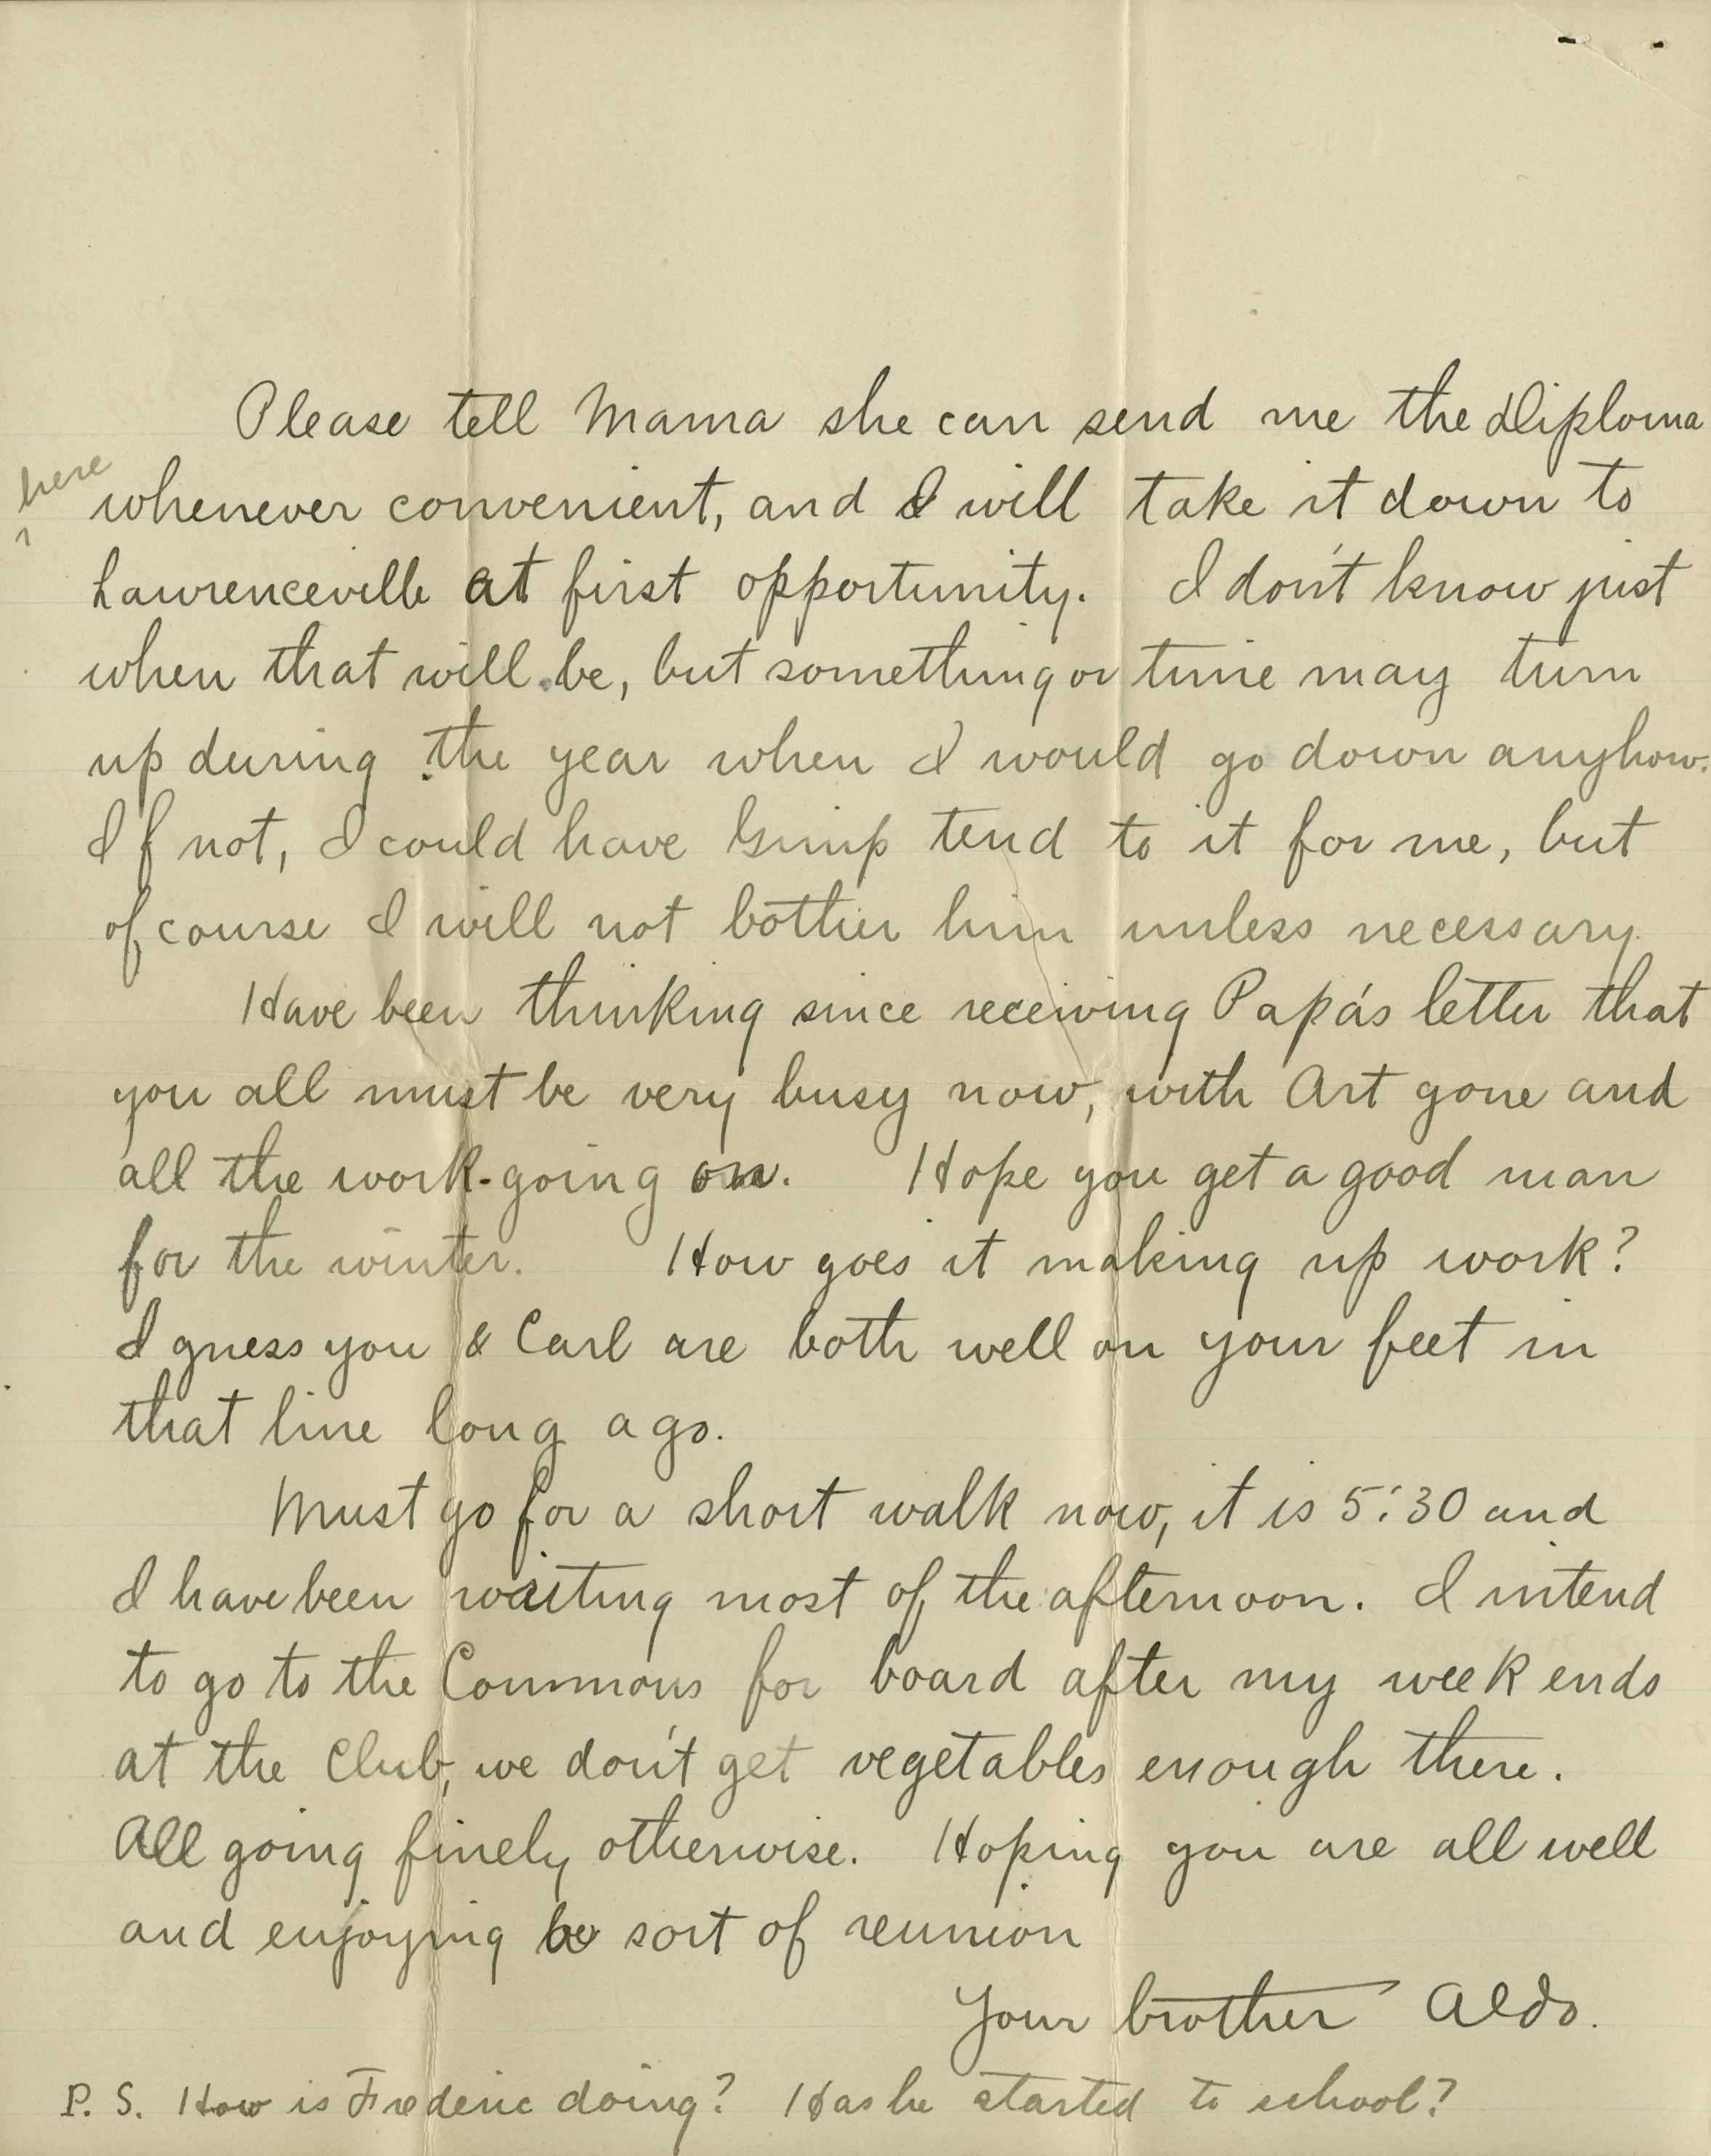 Please tell Mama she can send me the Diploma
here
whenever convenient, and I will take it down to
Lawrenceville at first opportunity. I don't know just
when that will be, but something or time may turn
up during the year when I would go down anyhow.
If not, I could have Gimp tend to it for me, but
of course I will not bother him unless necessary.
Have been thinking since receiving Papa's letter that
you all must be very busy now, with Art gone and
all the work going on. Hope you get a good man
for the winter. How goes it making up work?
I guess you & Carl are both well on your feet in
that line long ago.
Must go for a short walk now, it is 5:30 and
I have been writing most of the afternoon. I intend
to go to the Commons for board after my week ends
at the Club, we don't get vegetables enough there.
All going finely otherwise. Hoping you are all well
and enjoying sort of reunion
Your brother Aldo.
P. S. How is Frederic doing? Has he started to school?